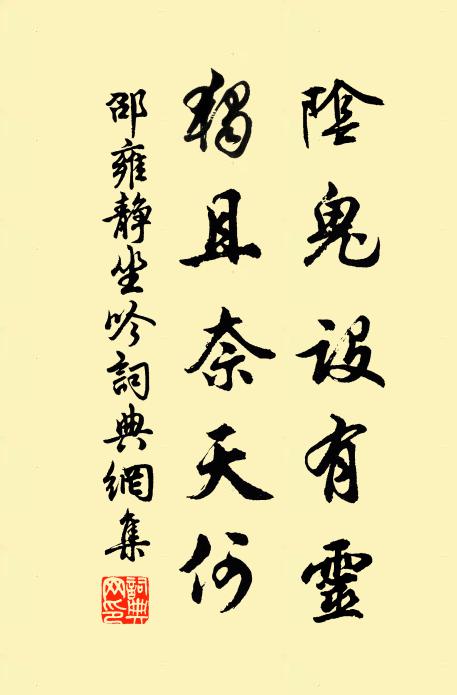 陰鬼設有靈
獨且奈天何
邵雍靜坐吟詞典網集
詞典网印